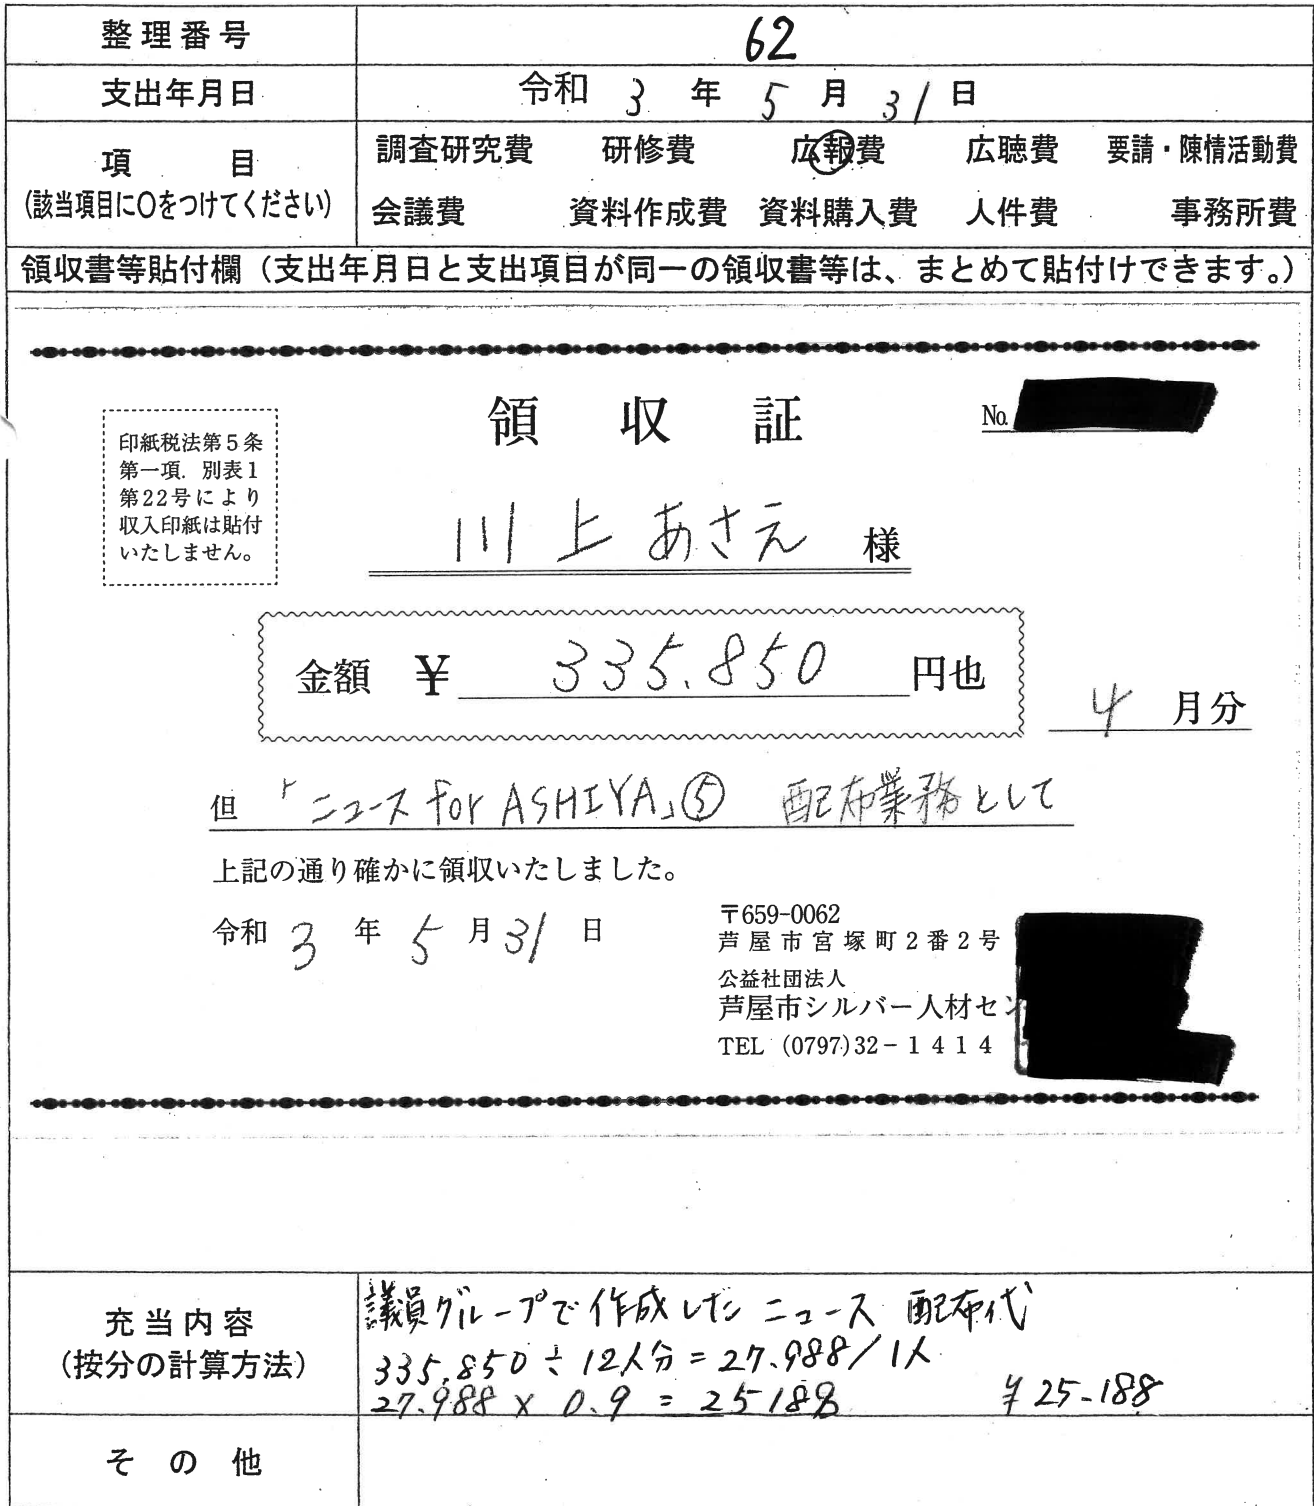 整理番号 62
支出年月日 令和 3 年 5 月 31 日
項目 調査研究費 研修費 広報費 広聴費 要請・陳情活動費
(該当項目に〇をつけてください) 会議費 資料作成費 資料購入費 人件費 事務所費
領収書等貼付欄(支出年月日と支出項目が同一の領収書等は、まとめて貼付けできます。)
領収証 No.
印紙税法第5条
第一項.別表1
第22号により
収入印紙は貼付
いたしません。
川上 あさえ 様
金額 ¥ 335.850 円也
4 月分
但 「ニュース for ASHIYA」⑤ 配布業務として
上記の通り確かに領収いたしました。
令和 3 年 5 月 31 日
〒659-0062
芦屋市宮塚町2番2号
公益社団法人
芦屋市シルバー人材セン
TEL (0797)32-1414
充当内容 議員グループで作成したニュース 配布代
(按分の計算方法) 335.850 ÷ 12人分 = 27.988/1人
27.988 × 0.9 = 25188 ¥25-188
その他